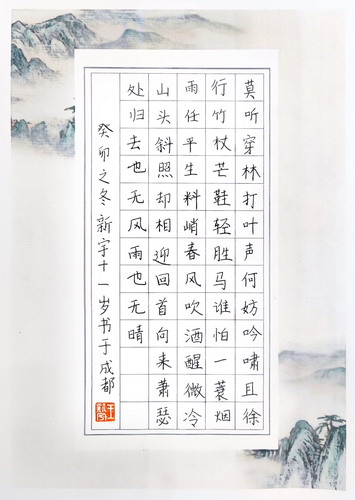 莫听穿林打叶声何妨吟啸且徐
行竹杖芒鞋轻胜马谁怕一蓑烟
雨任平生料峭春风吹酒醒微冷
山头斜照却相迎回首向来萧瑟
处归去也无风雨也无晴
癸卯之冬新宇十一岁书于成都